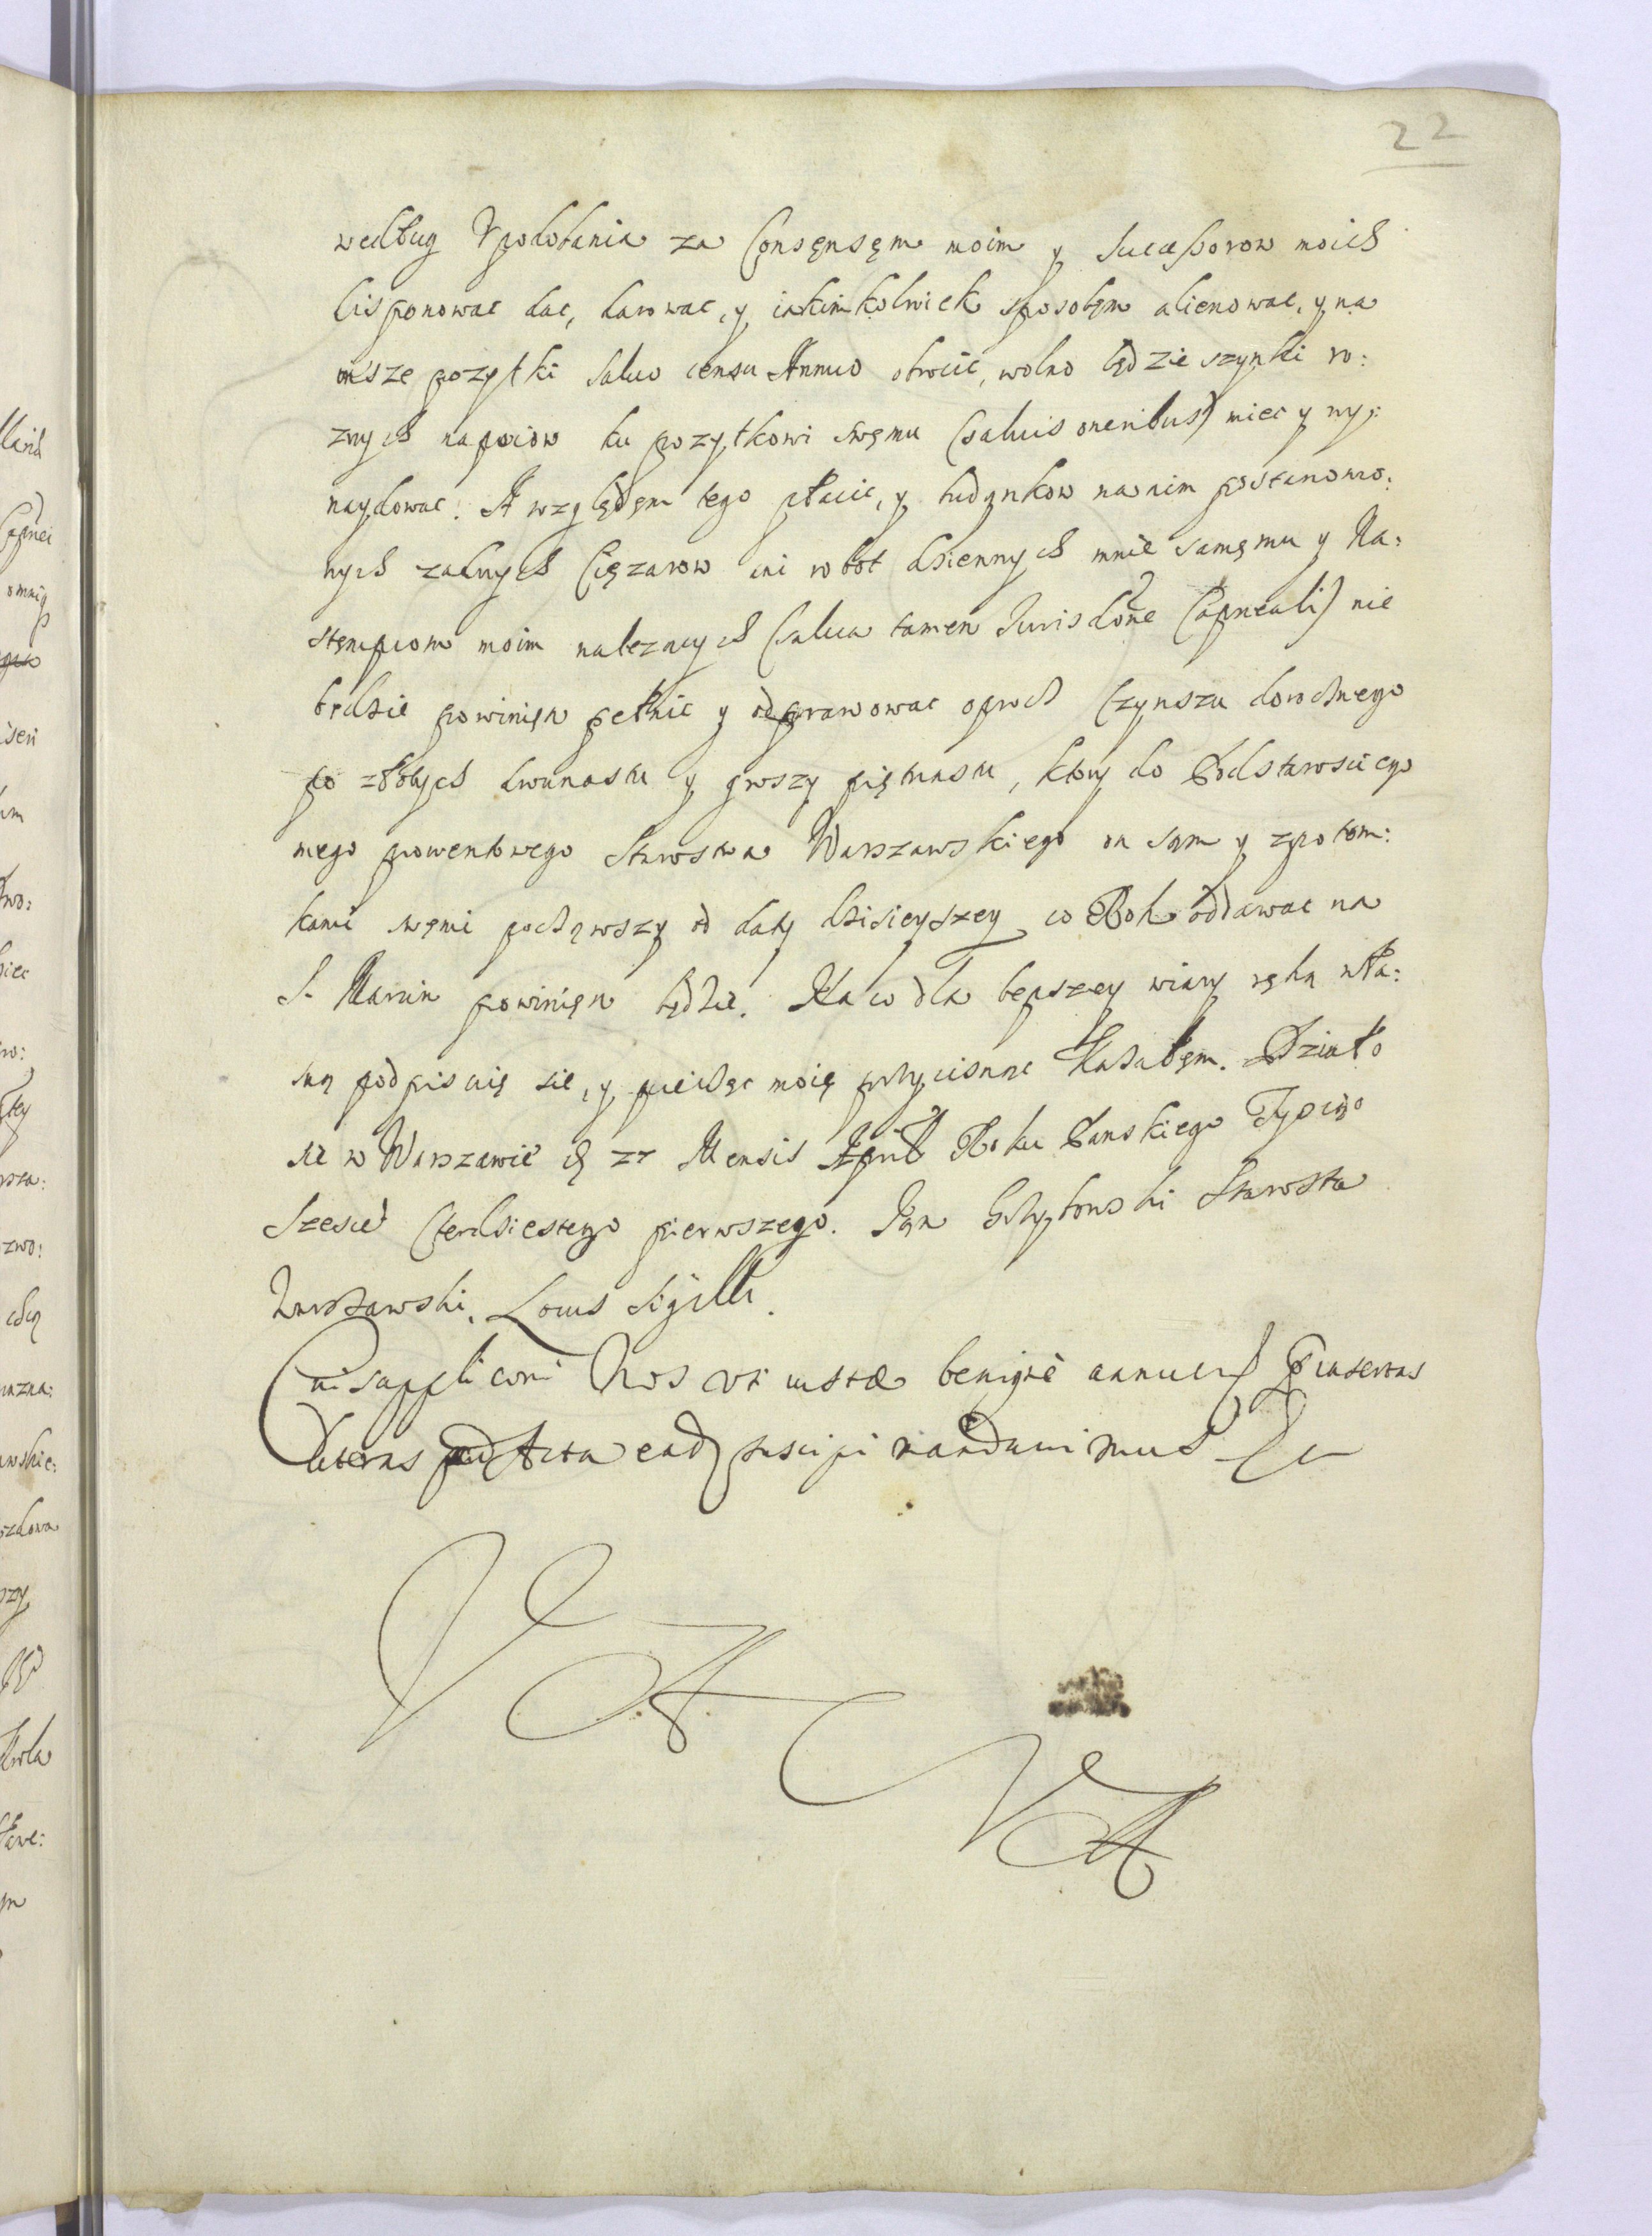 22
według Vpodobania za Consęnsęm moim y Successorow moich
disponowac dac, darowac, y iakimkolwiek sposobęm alienowac, y na
insze pozytki salvo censu Annuo obrocic, wolno będzie szynki ro:
znych napoiow ku pozytkowi swęmu (salvis oneribus) miec y wy:
naydowac. A względęm tego placu, y budynkow na nim postanowio:
nych zadnych Cięzarow ani robot dziennych mnie samęmu y Na:
stempcom moim nalezacych (salva tamen Jurisdone Capneali) nie
będzie powinięn pełnic y odprawowac oproch Czynszu dorocznego
po złotych dwunastu y groszy piętnastu, ktory do Podstarosciego
mego prowentowego Starostwa Warszawskiego on sąm y z potom:
kami swęmi począwszy od daty dzisieyszey co Rok oddawac na
S. Marcin powinięn będzie. Na co dla lepszey wiary ręką wła:
sną podpisuię sie, y pieczęc moię przycisnąc kazałęm. Działo
sie w Warszawie Mensis April Roku Panskiego Tysiąc
Szescset Czterdziestego pierwszego. Ján Grzybowski Starosta
Warszawski. Locus Sigilli.
Cui supplicaoni Nos vti iustæ benignè annuen Pinsertas
Literas ad Acta ead suscipi mandavimus